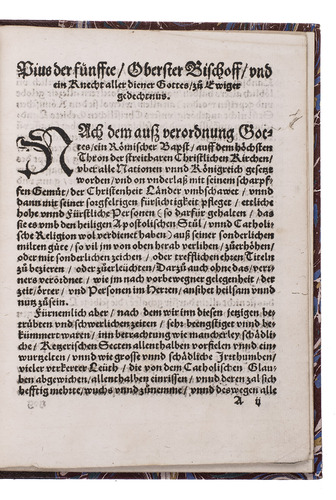 Pius der fünffte / Oberster Bischoff / vnd
ein Knecht aller diener Gottes / zů Ewiger
gedechtnus.
NAch dem auß verordnung Got-
tes / ein Römischer Bapst / auff dem höchsten
Thron der streitbaren Christlichen Kirchen /
vber alle Nationen vnnd Königreich gesetzt
worden / vnd on vnderlaß mit seinem scharpf-
fen Gemüt / der Christenheit Länder vmbschawet / vnnd
dann mit seiner sorgfeltigen fürsichtigkeit pfleget / ettliche
hohe vnnd Fürstliche Personen (so darfür gehalten / das
sie es vmb den heiligen Apostolischen Stůl / vnnd Catholi-
sche Religion wol verdienet haben) auß seiner sonderlichen
milten güte / so vil jm von oben herab verlihen / zůerhöhen /
oder mit sonderlichen zeichen / oder trefflichen ehren Titeln
zů bezieren / oder zůerleuchten / Darzů auch ohne das /
wie jm nach vorbewegner gelegenheit / der
zeit / örter / vnd Personen im Herren / ansihet heilsam vnnd
nutz zůsein.
Fürnemlich aber / nach dem wir inn diesen jetzigen be-
trübten vnd schwerlichen zeiten / sehr beengstiget vnnd be-
kümmert waren / inn betrachtung wie mancherley schädli-
che / Ketzerischen Secten allenthalben vorfielen vnnd ein-
wurtzelten / vnnd wie grosse vnnd schädliche Irrthumben /
vieler verkerter Leüth / die von dem Catholischem Glau-
ben abgewichen / allenthalben einrissen / vnnd deren zal sich
hefftig mehrte / wuchs vnnd zůnemme / vnnd deswegen alle
A ij